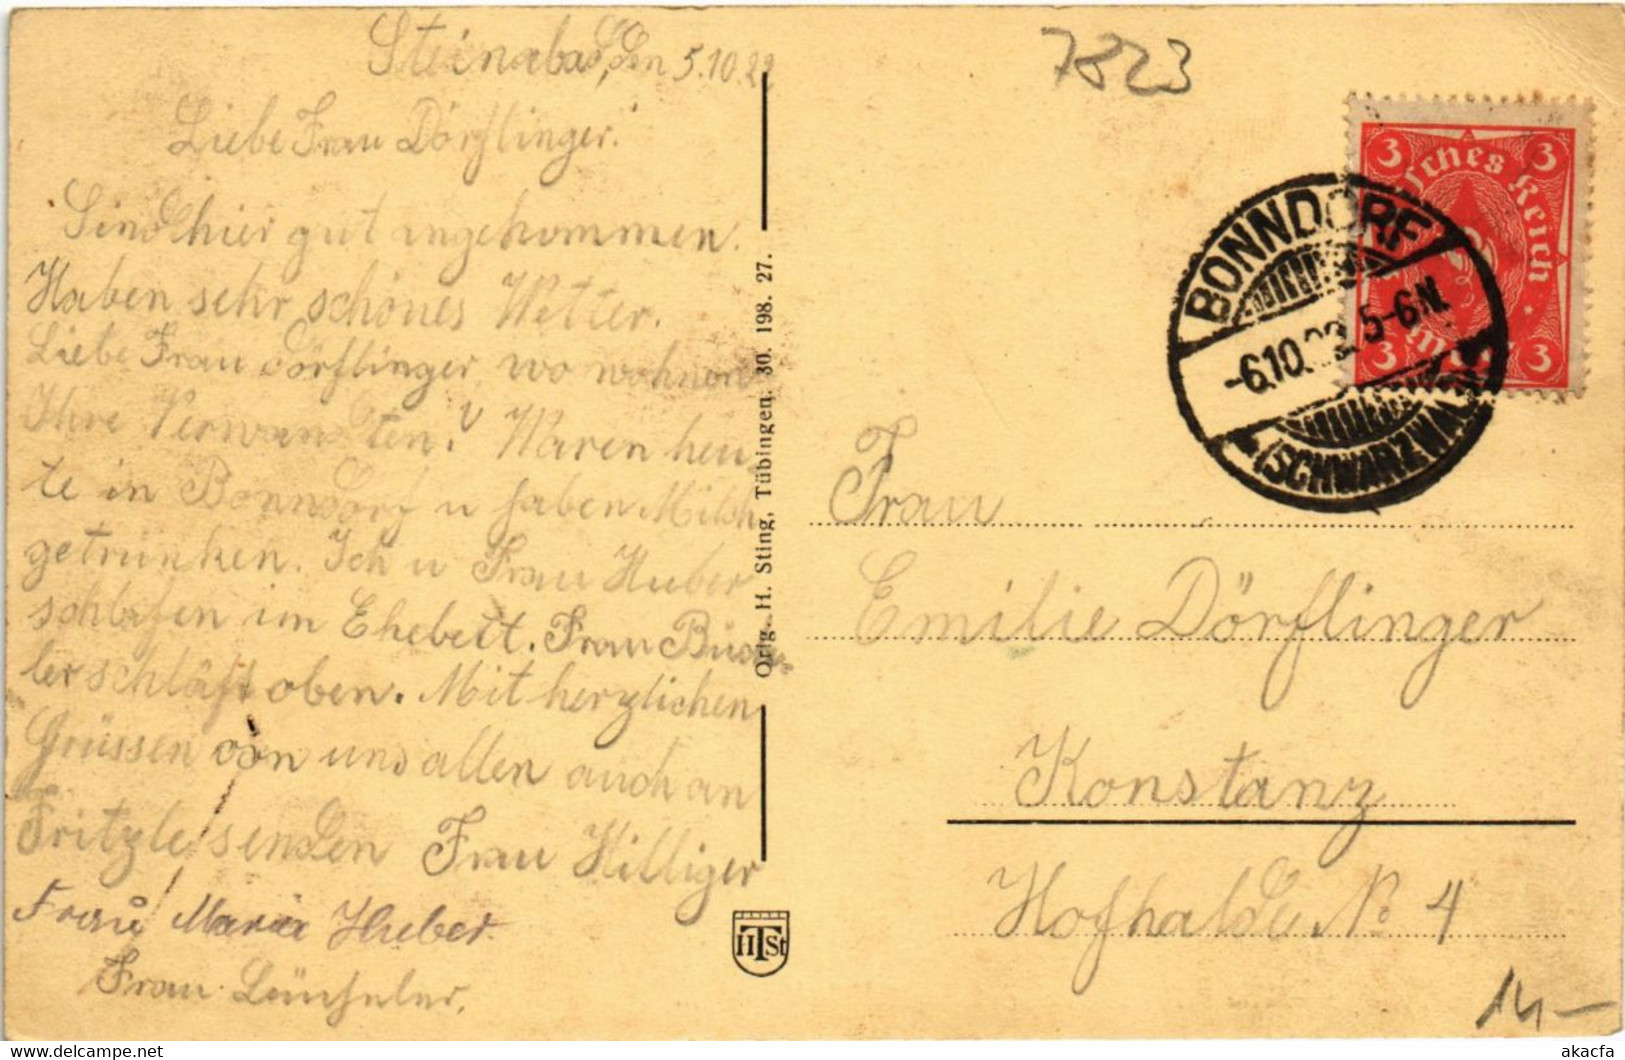 Steinabad, den 5.10.22
Liebe Frau Dörflinger!
Sind hier gut angekommen.
Haben sehr schönes Wetter.
Liebe Frau Dörflinger, wo wohnen
Ihre Verwandten? Waren heu-
te in Bonndorf u haben Milch
getrunken. Ich u Frau Huber
schlafen im Ehebett. Frau
ler schläft oben. Mit herzlichen
Grüssen von uns allen auch an
Fritzle senden Frau Hilliger
Frau Maria Huber.
Frau
Orig. H. Sting, Tübingen, 30. 198. 27.
HTSt
7823
3 3
sches Reich
3 3
BONNDORF
-6.10.22. 5-6N.
(SCHWARZWALD)
Frau
Emilie Dörflinger
Konstanz
Hofhalde No 4
14-
akacfa